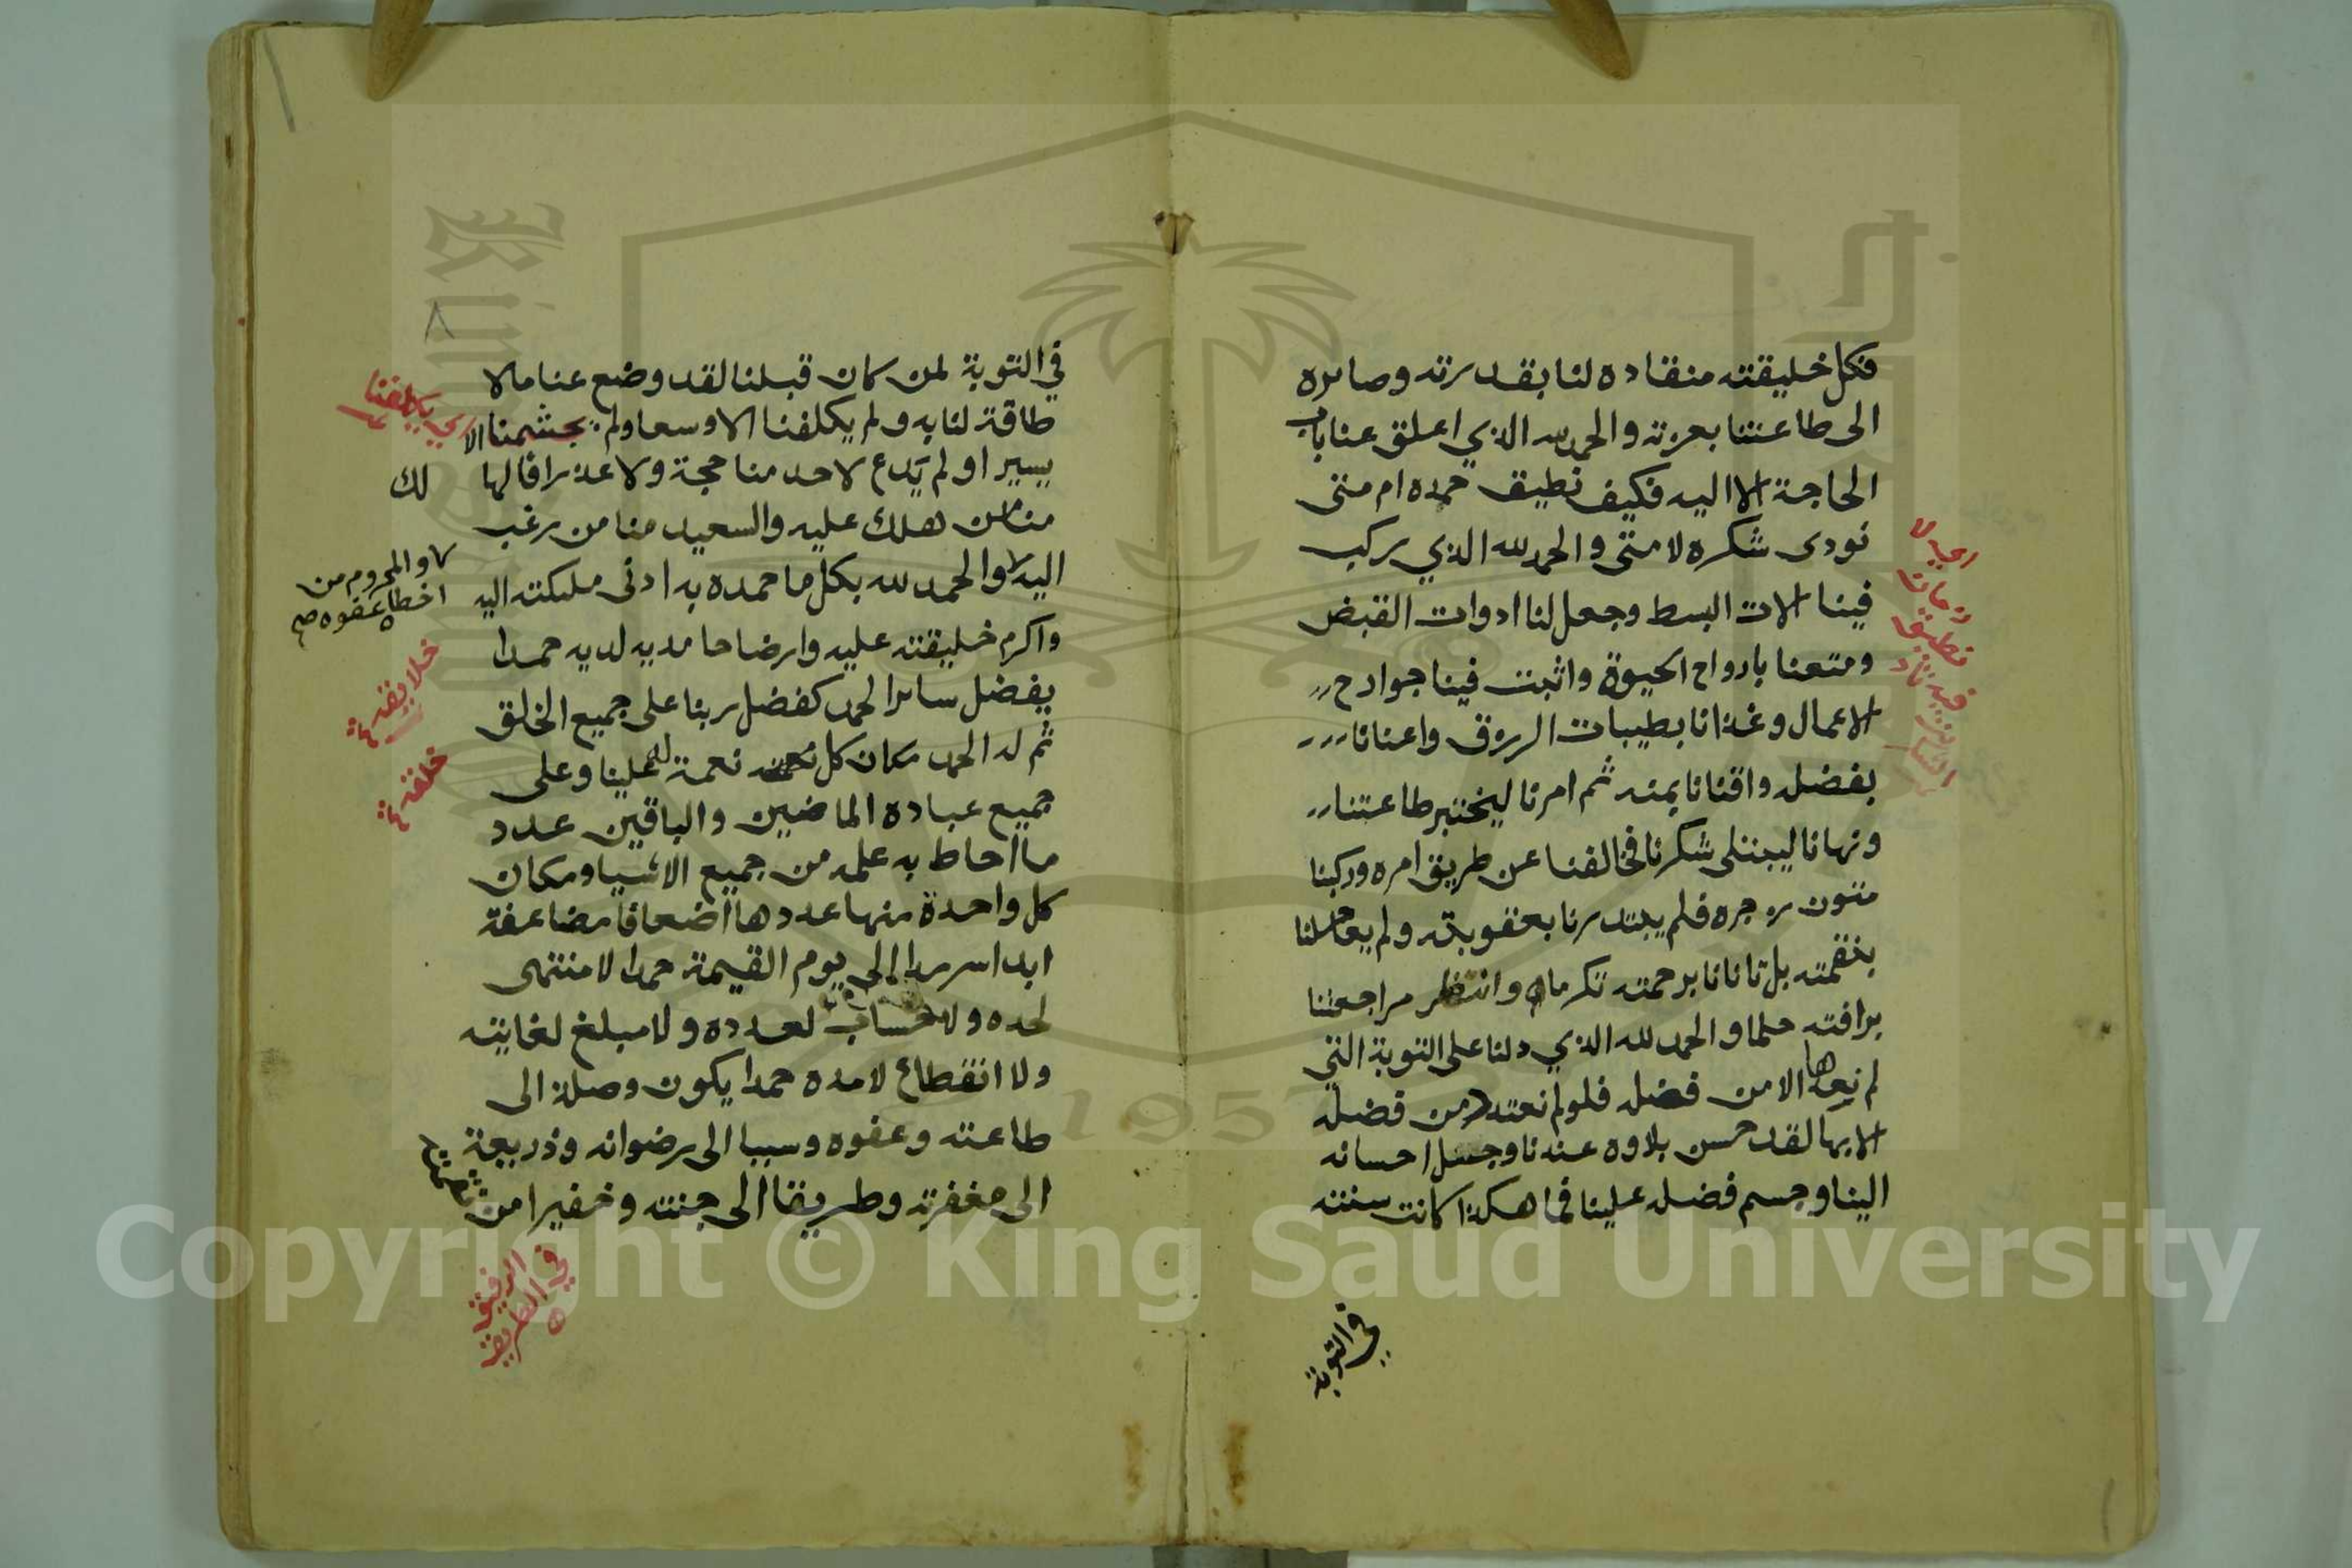 فكل خليقته منقادة لنا بقدرته وصائرة
الى طاعتنا بعزته والحمد لله الذي اغلق عنا باب
الحاجة الا اليه فكيف نطيق حمده ام متى
نودى شكره لا متى والحمد لله الذي ركب
فينا الات البسط وجعل لنا ادوات القبض
ومتعنا بارواح الحيوة واثبت فينا جوارح
الاعمال وغذانا بطيبات الرزق واغنانا
بفضله واقنانا بمنه ثم امرنا ليختبر طاعتنا
ونهانا ليبتلى شكرنا فخالفنا عن طريق امره وركبنا
متون زجره فلم يبتدرنا بعقوبته ولم يعاجلنا
بنقمته بل تانانا برحمته تكرما وانتظر مراجعتنا
برافته حلما والحمد لله الذي دلنا على التوبة التي
لم نفدها الا من فضله فلو لم نعتد من فضله
الا بها لقد حسن بلاوه عندنا وجل احسانه
الينا وجسم فضله علينا فما هكذا كانت سنته
في التوبة
في التوبة لمن كان قبلنا لقد وضع عنا مالا
طاقة لنا به ولم يكلفنا الا وسعا ولم يجشمنا الا
يسيرا و لم يدع لاحد منا حجة ولا عذرا فالها
لك
منا من هلك عليه والسعيد منا من رغب
اليه والحمد لله بكل ما حمده به ادنى مليكته اليه
واكرم خليقته عليه وارضا حامديه لديه حمدا
يفضل سائر الحمد كفضل ربنا على جميع الخلق
ثم له الحمد مكان كل نعمة له علينا وعلى
جميع عباده الماضين والباقين عدد
ما احاط به علمه من جميع الاشيا ومكان
كل واحدة منها عددها اضعافا مضاعفة
ابدا سرمدا الى يوم القيمة حمدا لا منتهى
لحده ولا حساب لعدده ولا مبلغ لغايته
ولا انقطاع لامده حمدا يكون وصلة الى
طاعته وعفوه وسببا الى رضوانه وذريعة
الى مغفرته وطريقا الى جنته وخفيرا من
نقمته
اي يكلفنا
والمحروم من
اخطاه عفوه صح
خلايقه
خلقه
في الطريق
1957
Copyright © King Saud University